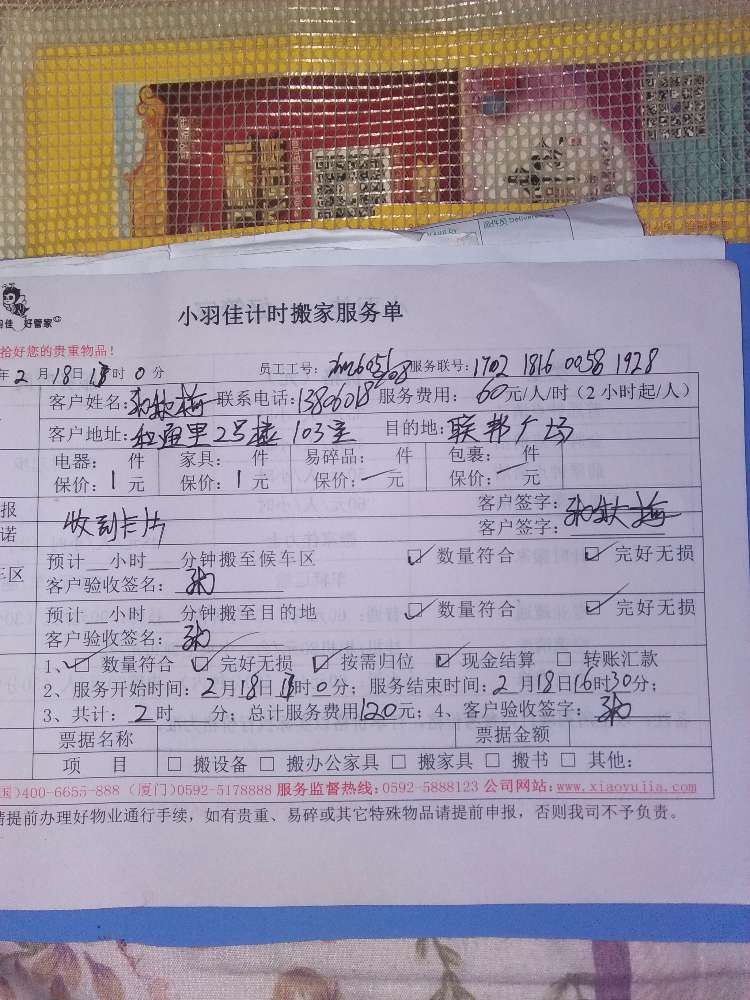 小羽佳计时搬家服务单
羽佳 好管家
拾好您的贵重物品！
年2月18日 时0分 员工工号： 服务联号：1702 1816 0058 1928
客户姓名： 联系电话：13806018 服务费用：60元/人/时（2小时起/人）
客户地址： 里2号楼 103室 目的地：联邦广场
电器： 件 家具： 件 易碎品： 件 包裹： 件
保价：1元 保价：1元 保价：一元 保价：一元
报 客户签字：
诺 收到卡片 客户签字：
预计__小时___分钟搬至候车区 ☑ 数量符合 ☑ 完好无损
车区 客户验收签名：
预计__小时___分钟搬至目的地 ☑ 数量符合 ☑ 完好无损
客户验收签名：
1、☑ 数量符合 ☑ 完好无损 ☑ 按需归位 ☑ 现金结算 □ 转账汇款
2、服务开始时间：2月18日 时0分；服务结束时间：2月18日16时30分；
3、共计：2时 分；总计服务费用120元；4、客户验收签字：
票据名称 票据金额
项 目 □ 搬设备 □ 搬办公家具 □ 搬家具 □ 搬书 □ 其他：
国）400-6655-888（厦门）0592-5178888 服务监督热线：0592-5888123 公司网站：www.xiaoyujia.com
请提前办理好物业通行手续，如有贵重、易碎或其它特殊物品请提前申报，否则我司不予负责。